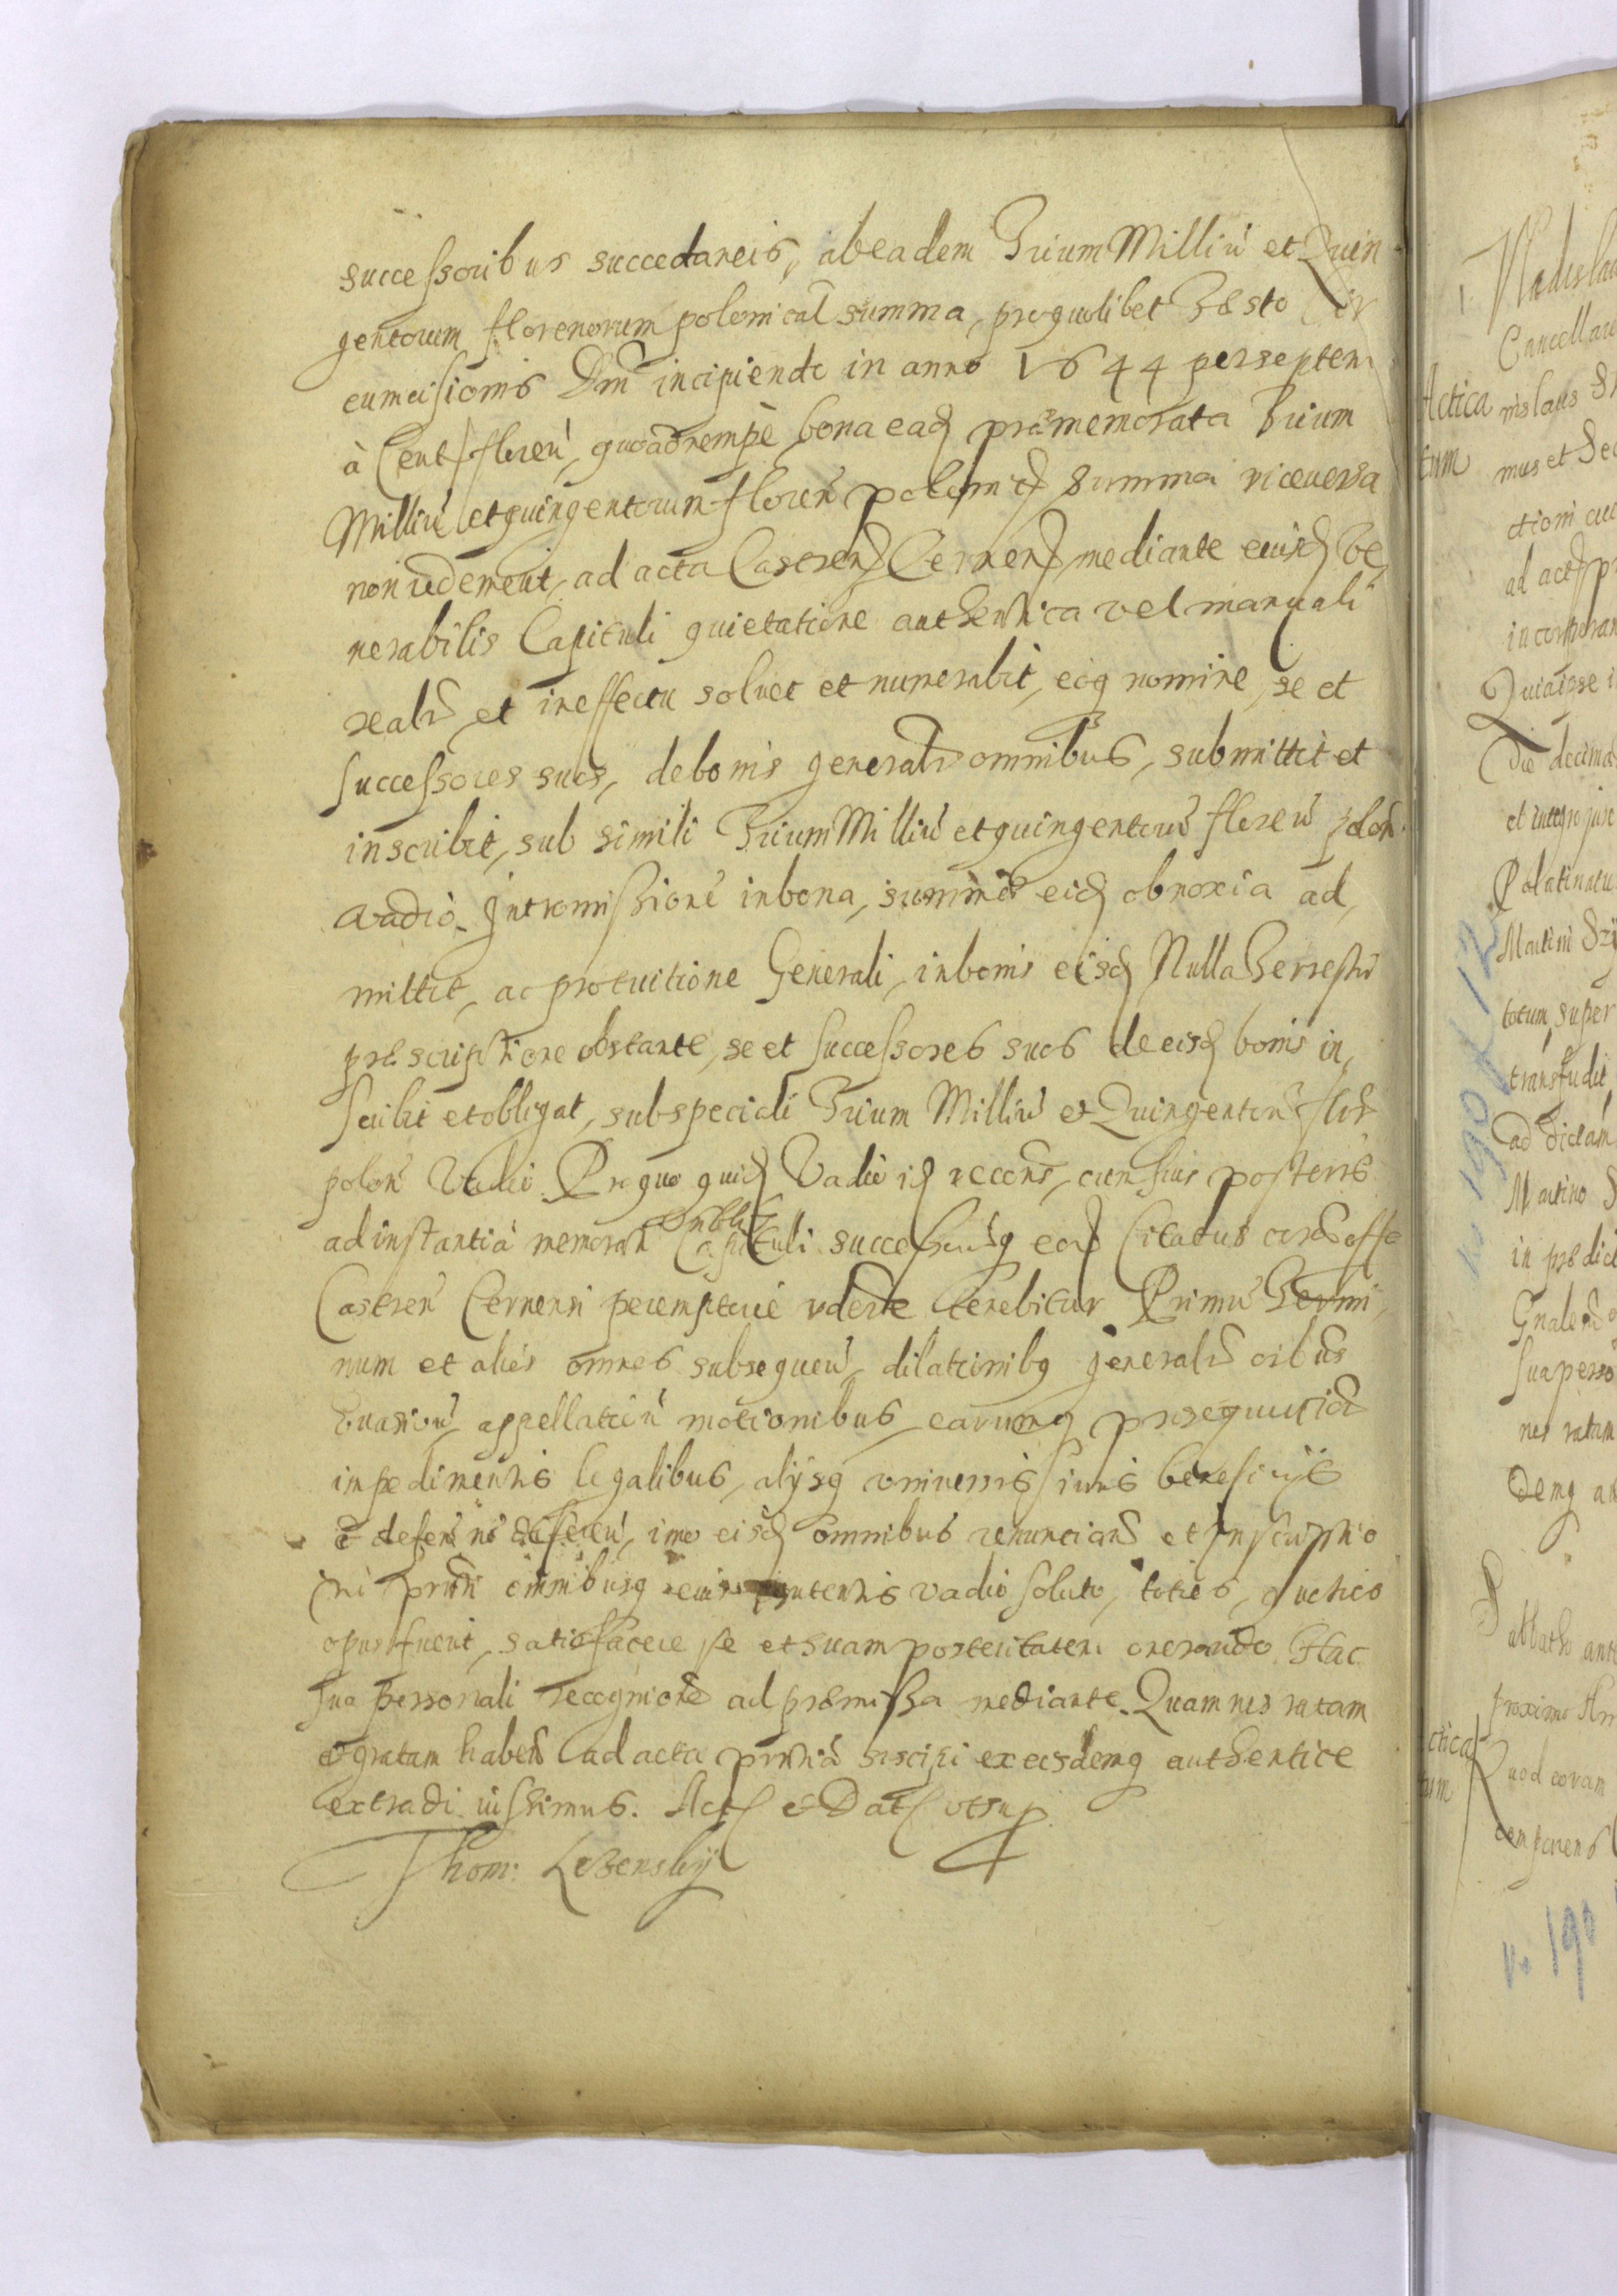 successoribus succedaneis, ab eadem Trium Milliu et Quin
gentorum florenorum polonical summa, pro quolibet Festo Cir
cumcisionis Dni incipiendo in anno 1644 per septem
à Cent floren, quoad nempè bona ead præmemorata Trium
Milliu et quingentorum floren polon summa viceversa
non redemerit, ad acta Castren Cernen mediante eiusd Ve
nerabilis Capituli quietatione authentica vel manuali
realr et in effectu solvet et numerabit, eoq nomine, se et
successores suos, de bonis generalr omnibus, submittit et
inscribit, sub simili Trium Milliu et quingentoru floren polon
vadio. Intromissione in bona, summæ eid obnoxia ad
mittit, ac pro tuitione Generali, in bonis eisd Nulla Terrestri
præscriptione obstante, se et successores suos de eisd bonis in
scribit et obligat, sub speciali Trium Milliu et Quingentoru flor
polon Vadii. Pro quo quid Vadio id recogns, cum suis posteris
ad instantia memorati Venblis Capituli successorusq eod Citatus coram offo
Castren Cernensi peremptorie rndere tenebitur Primu Termi
num et alios omnes subsequen, dilationibq generalr oibus
evasion, appellation motionibus, earumq prosequution
impedimentis legalibus, alijsq universis iuris beneficijs
et defens no defseren, imo eisd omnibus renuncians et Inscriptio
ni prnti omnibusq contentis vadio soluto, toties, quoties
opus fuerit, satisfacere se et suam posteritatem onerando. Hac
sua personali recognione ad præmissa mediante. Quam nos ratam
et gratam haben ad acta prntia suscipi ex eisdemq authentice
extradi iussimus. Act et Dat ut sup
Thom:
Vladislau
Cancellari
Actica
nislaus
tum
mus et
ctioni
ad act
incorporan
Quia ipse
Die decima
et integro jure
Palatinatu
Martini
totum, super
transfudit
ad dictam
Martino
in prædict
sua perso
nes ratam
demq
Sabbatho ante
proximo
ctica
tum
Quod coram
comparens
190